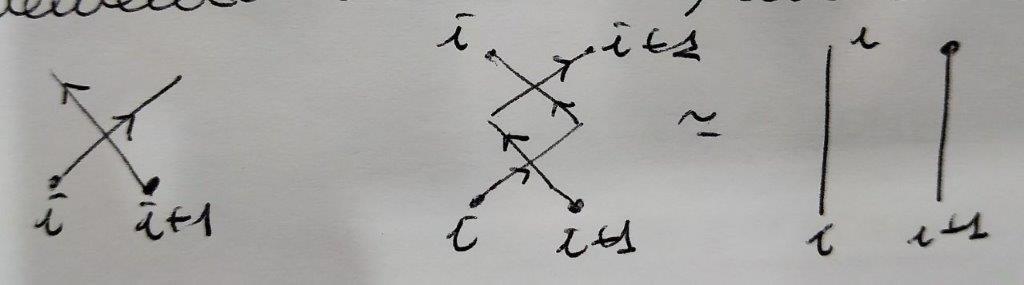 i i+1
≃
i
i i+1 i i+1 i i+1